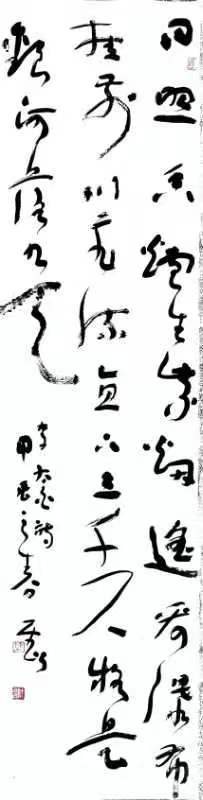 日照香爐生紫煙遙看瀑布
挂前川飛流直下三千尺疑是
銀河落九天
李太白詩
甲辰之春